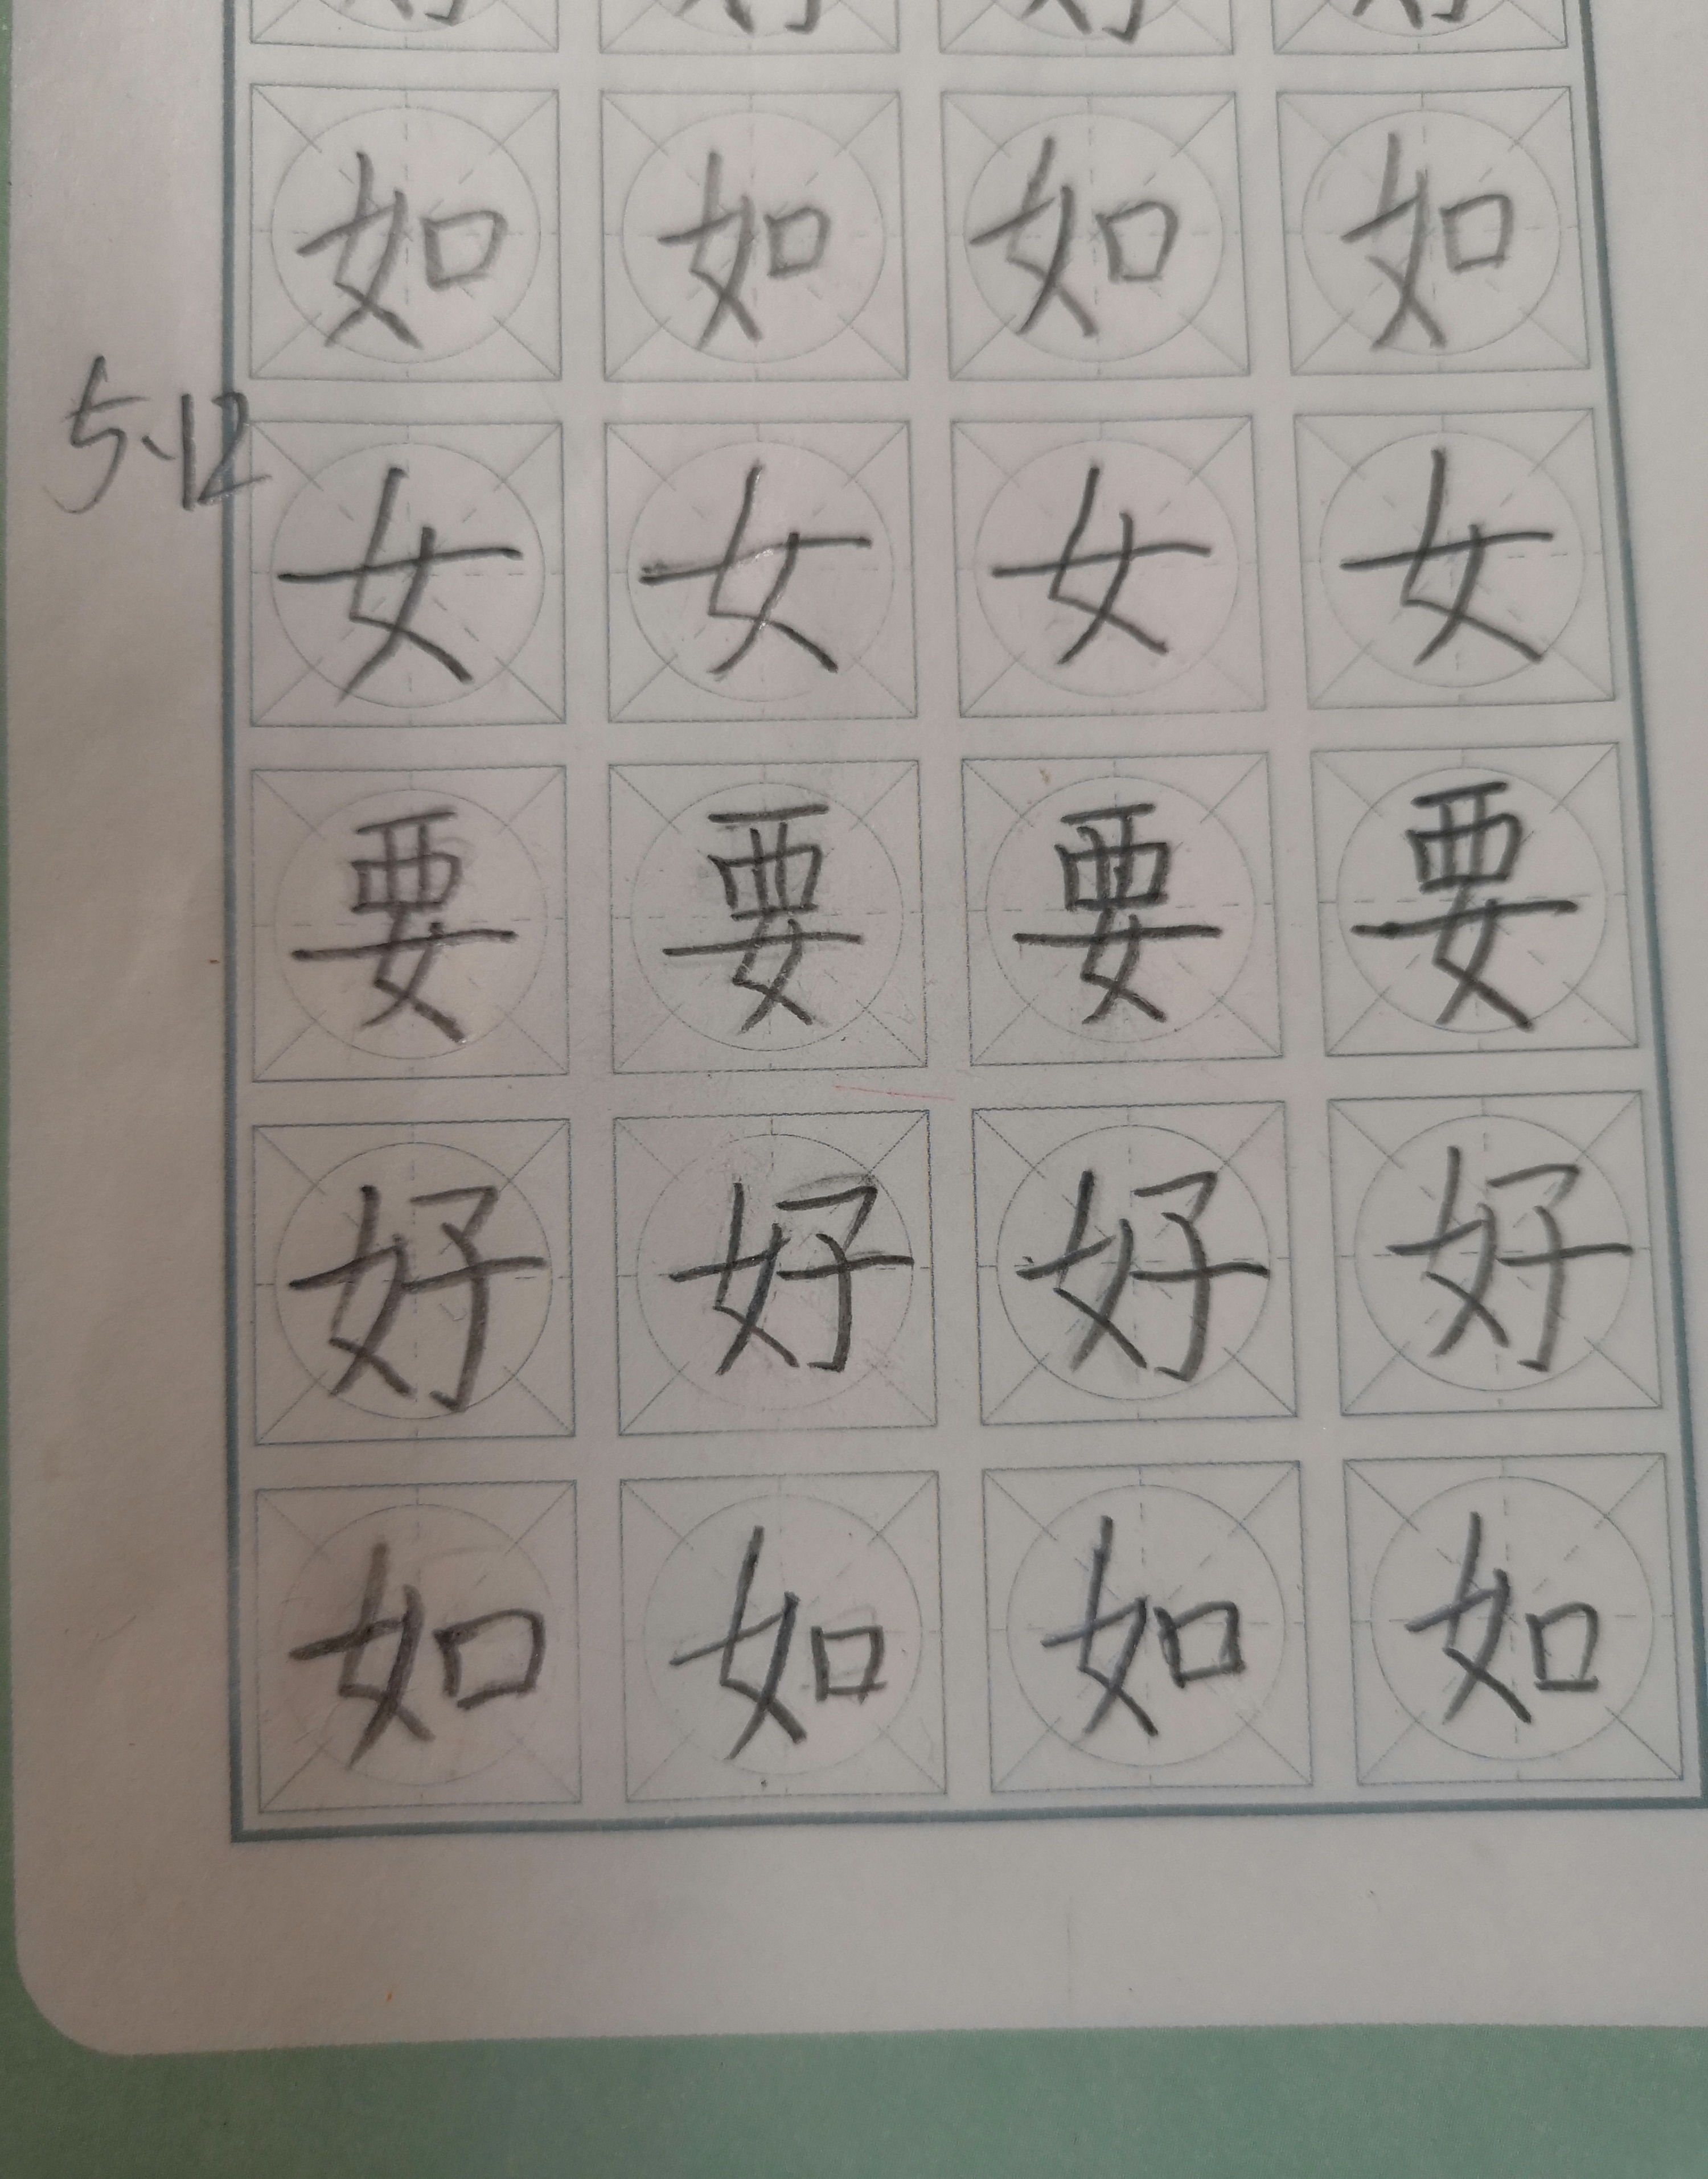 如 如 如 如
5.12
女 女 女 女
要 要 要 要
好 好 好 好
如 如 如 如